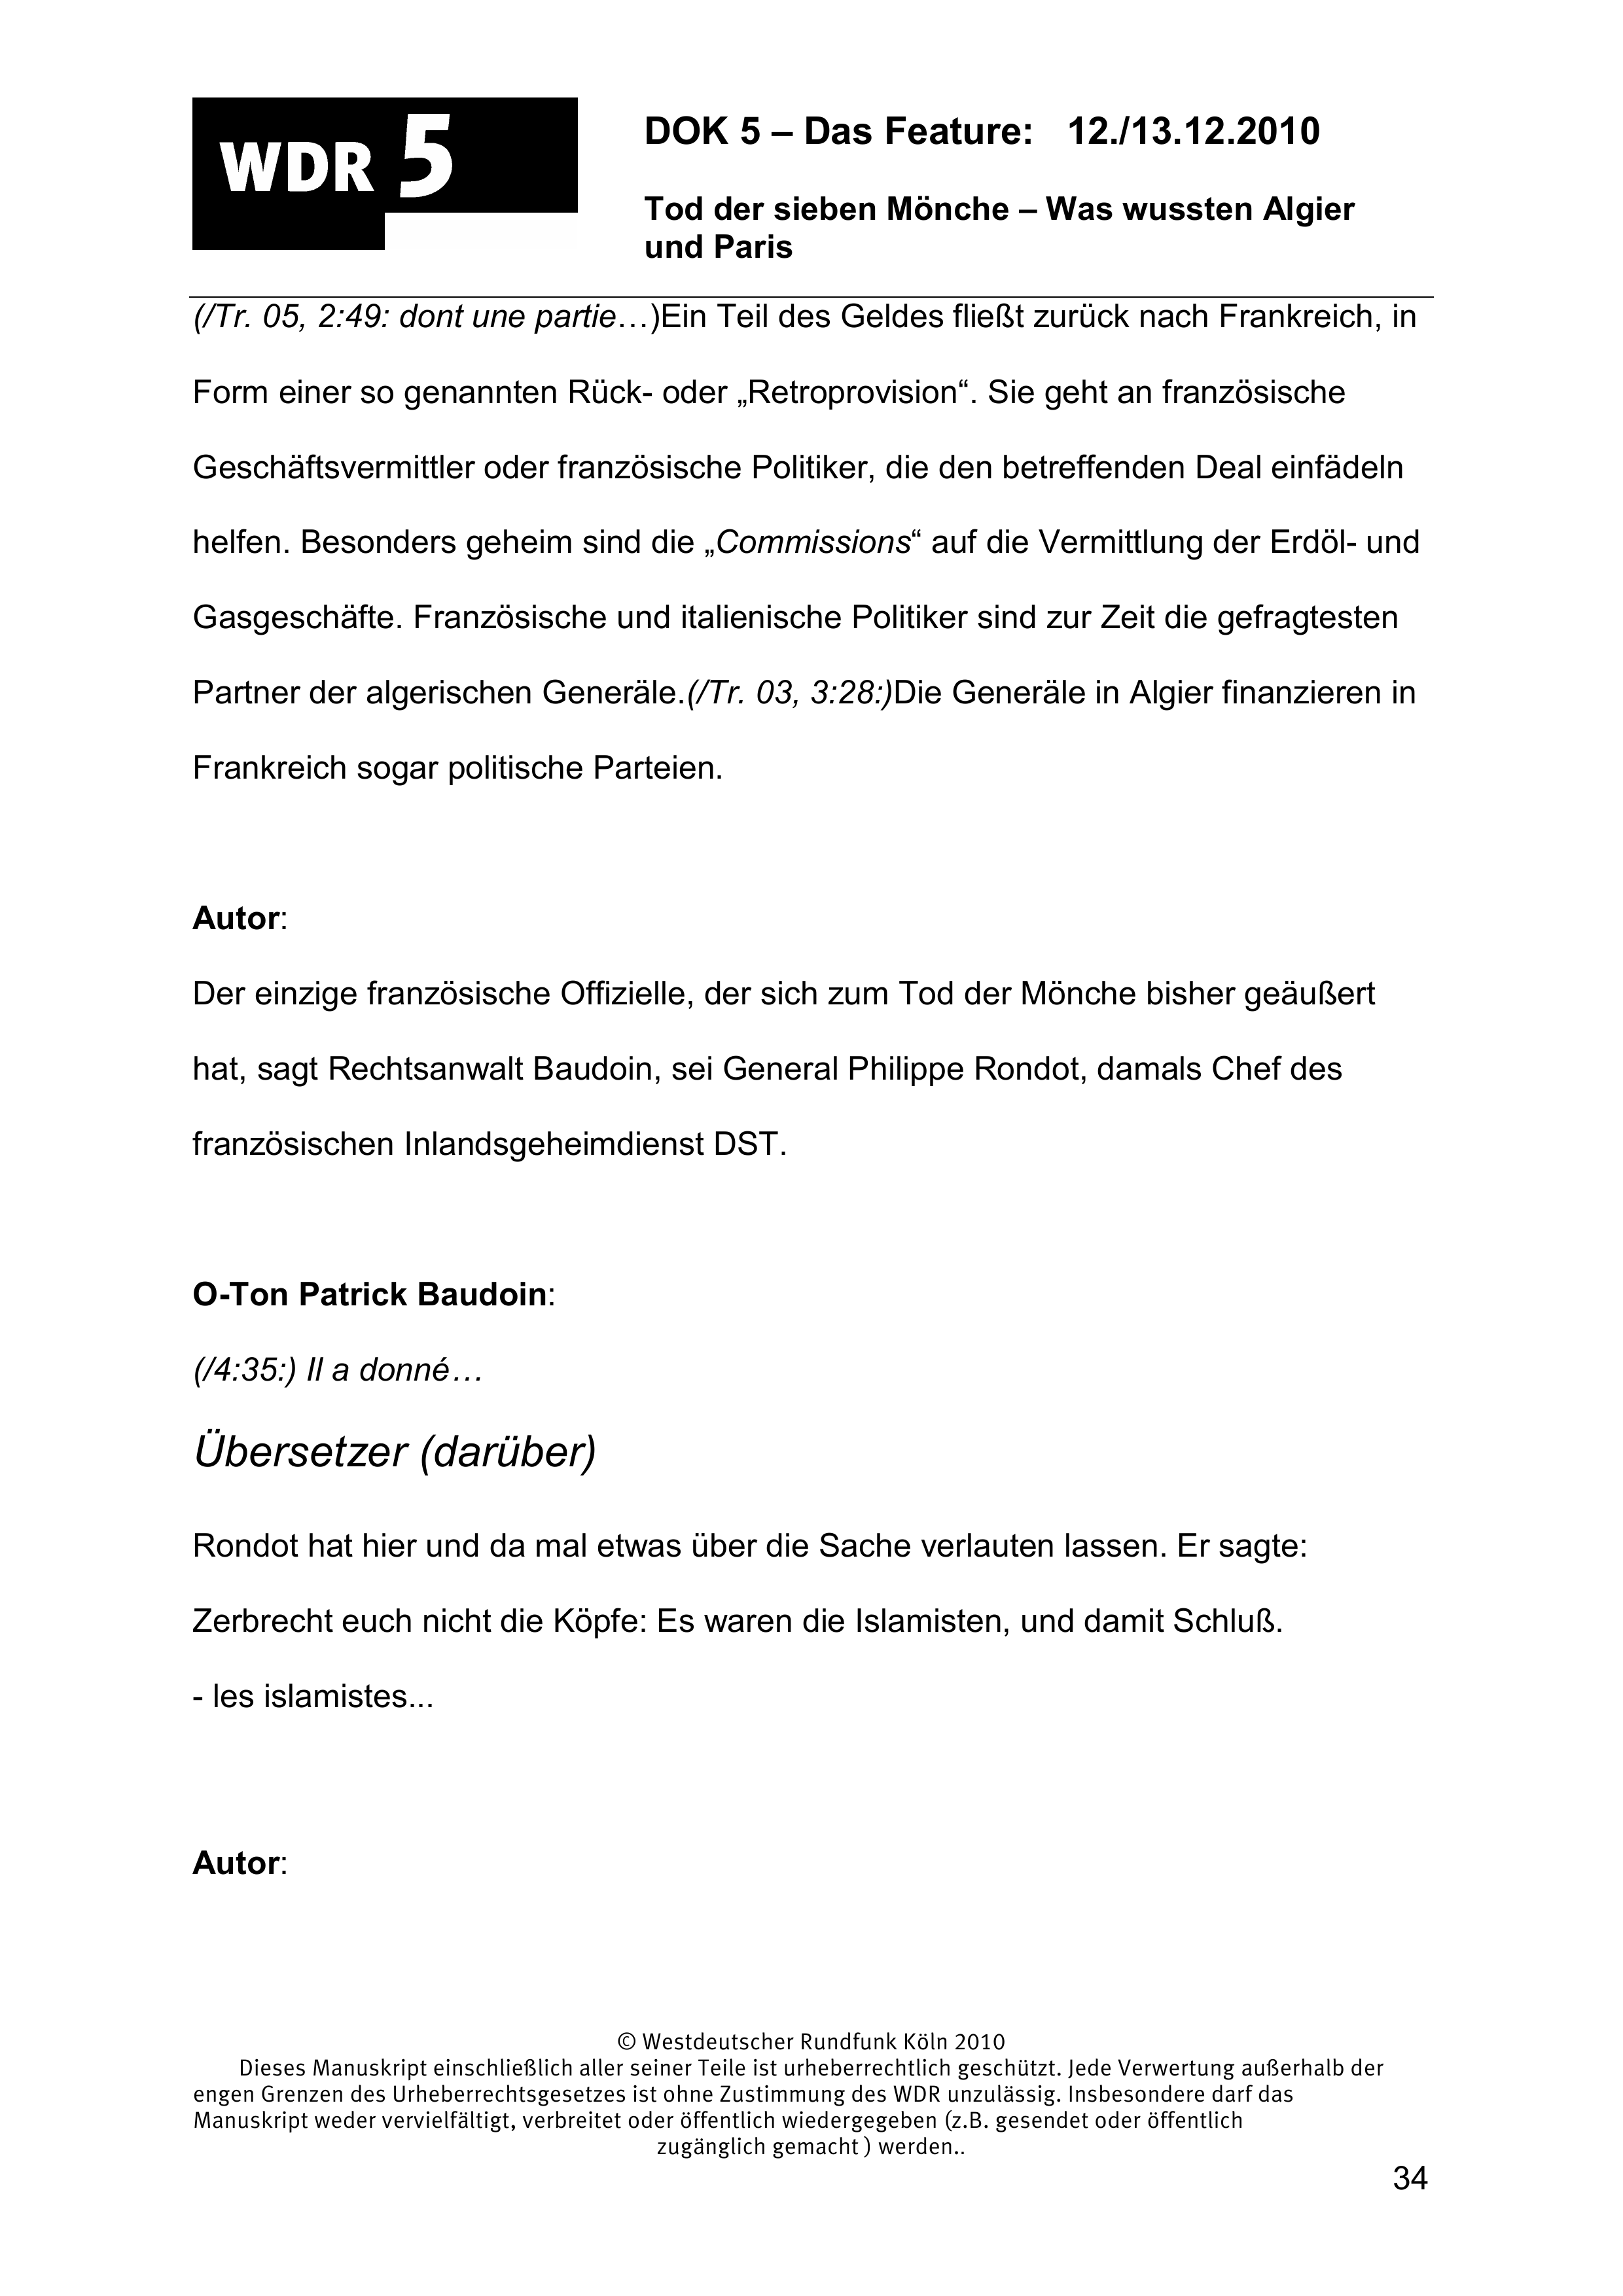 WDR 5
DOK 5 – Das Feature: 12./13.12.2010
Tod der sieben Mönche – Was wussten Algier
und Paris
(/Tr. 05, 2:49: dont une partie…)Ein Teil des Geldes fließt zurück nach Frankreich, in
Form einer so genannten Rück- oder „Retroprovision“. Sie geht an französische
Geschäftsvermittler oder französische Politiker, die den betreffenden Deal einfädeln
helfen. Besonders geheim sind die „Commissions“ auf die Vermittlung der Erdöl- und
Gasgeschäfte. Französische und italienische Politiker sind zur Zeit die gefragtesten
Partner der algerischen Generäle.(/Tr. 03, 3:28:)Die Generäle in Algier finanzieren in
Frankreich sogar politische Parteien.
Autor:
Der einzige französische Offizielle, der sich zum Tod der Mönche bisher geäußert
hat, sagt Rechtsanwalt Baudoin, sei General Philippe Rondot, damals Chef des
französischen Inlandsgeheimdienst DST.
O-Ton Patrick Baudoin:
(/4:35:) Il a donné…
Übersetzer (darüber)
Rondot hat hier und da mal etwas über die Sache verlauten lassen. Er sagte:
Zerbrecht euch nicht die Köpfe: Es waren die Islamisten, und damit Schluß.
- les islamistes...
Autor:
© Westdeutscher Rundfunk Köln 2010
Dieses Manuskript einschließlich aller seiner Teile ist urheberrechtlich geschützt. Jede Verwertung außerhalb der
engen Grenzen des Urheberrechtsgesetzes ist ohne Zustimmung des WDR unzulässig. Insbesondere darf das
Manuskript weder vervielfältigt, verbreitet oder öffentlich wiedergegeben (z.B. gesendet oder öffentlich
zugänglich gemacht ) werden..
34